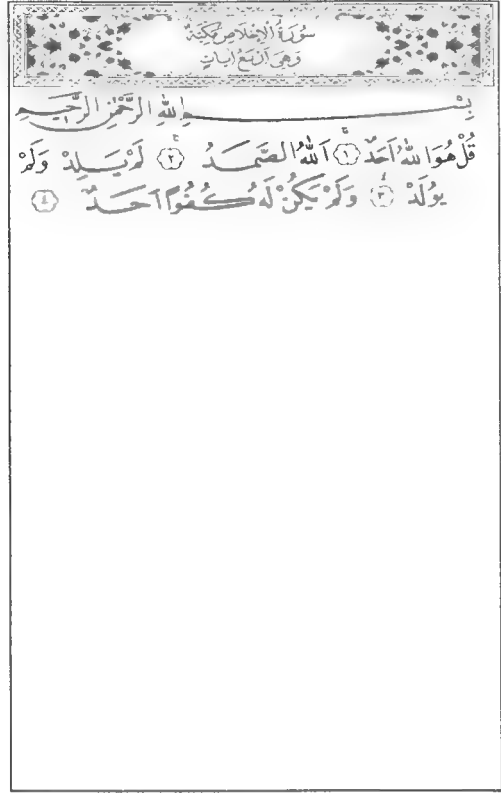 سُورَةُ الْاِخْلَاصِ مَكِّيَّةٌ
وَهِيَ اَرْبَعُ اٰيَاتٍ
بِسْمِ اللّٰهِ الرَّحْمٰنِ الرَّحِيمِ
قُلْ هُوَ اللّٰهُ اَحَدٌ ﴿١﴾ اَللّٰهُ الصَّمَدُ ﴿٢﴾ لَمْ يَلِدْ وَلَمْ
يُولَدْ ﴿٣﴾ وَلَمْ يَكُنْ لَهُ كُفُوًا اَحَدٌ ﴿٤﴾